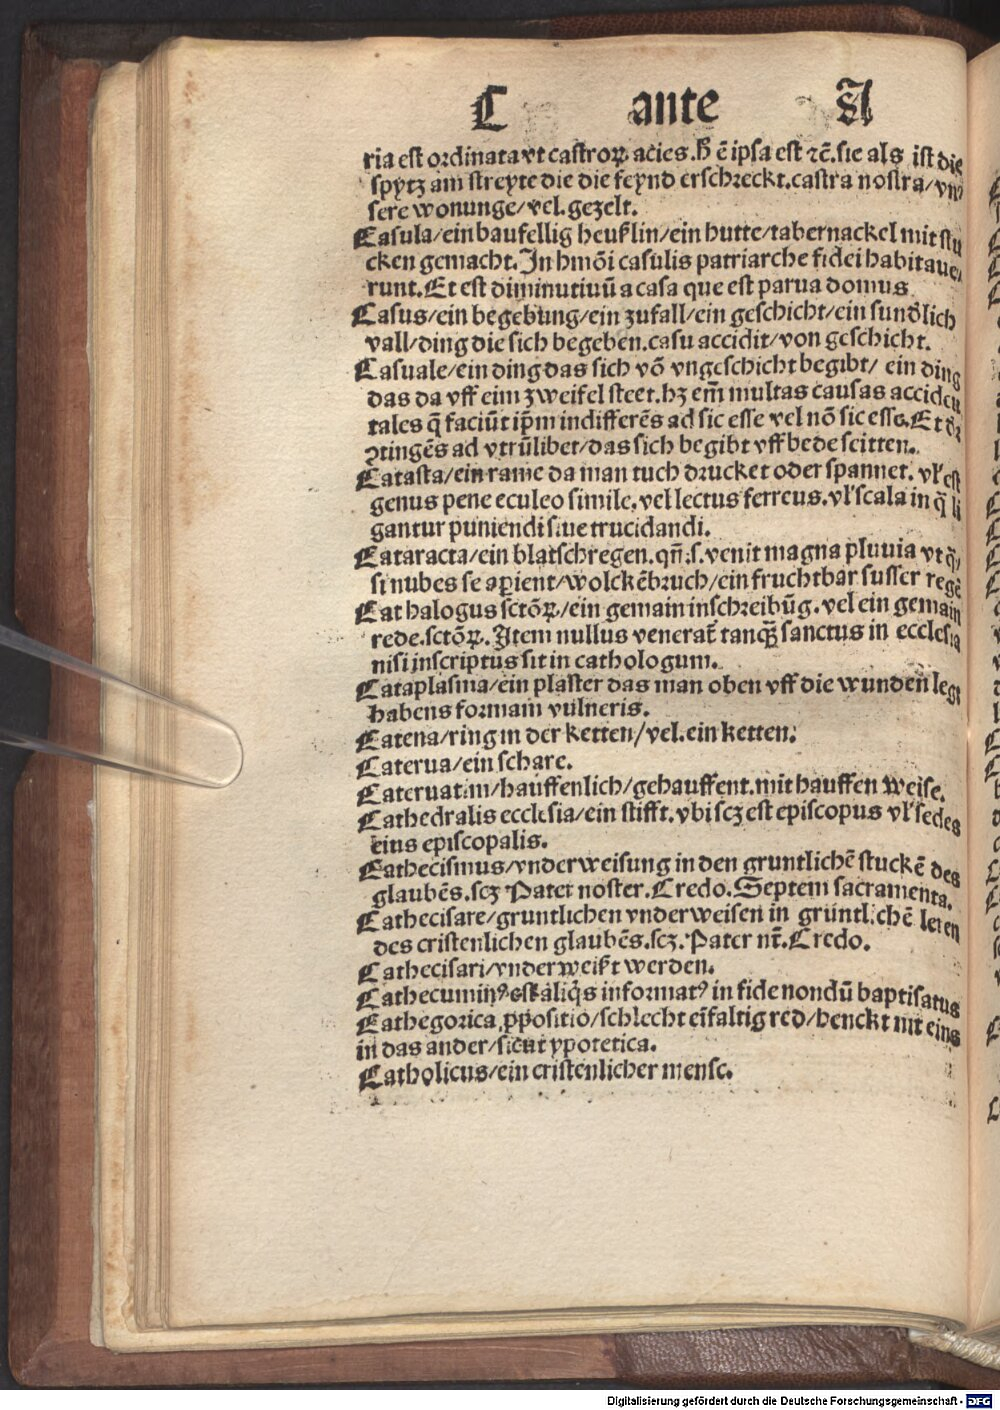 C ante A
ria est ordinata vt castroꝝ acies. h̄ ē ipsa est ⁊c̄. sie als ist die
spytz am streyte die die feynd erschreckt. castra nostra/vn
sere wonunge/vel. gezelt.
Casula/ein baufellig heußlin/ein hutte/tabernackel mit stu
cken gemacht. In hmōi casulis patriarche fidei habitaue
runt. Et est diminutiuū a casa que est parua domus
Casus/ein begebung/ein zufall/ein geschicht/ein sundlich
vall/ding die sich begeben. casu accidit/von geschicht.
Casuale/ein ding das sich vō vngeschicht begibt/ ein ding
das da vff eim zweifel steet. hz em̄ multas causas acciden
tales q̄ faciūt ip̄m indifferēs ad sic esse vel nō sic esse. Et
ꝯtingēs ad vtrūlibet/das sich begibt vff bede seitten.
Catasta/ein rame da man tuch drucket oder spannet. vl' est
genus pene eculeo simile. vel lectus ferreus. vl' scala in q̄ li
gantur puniendi siue trucidandi.
Cataracta/ein blatschregen. qn̄. s. venit magna pluuia vt q̄
si nubes se aperient/wolckēbruch/ein fruchtbar susser regē
Cathalogus sctōꝝ/ein gemain inschreibūg. vel ein gemain
rede. sctōꝝ. Item nullus venerat̄ tanqꝫ sanctus in ecclesia
nisi inscriptus sit in cathologum.
Cataplasma/ein plaster das man oben vff die wunden legt
habens formam vulneris.
Catena/ring in der ketten/vel. ein ketten.
Caterua/ein schare.
Cateruatim/hauffenlich/gehauffent. mit hauffen weise.
Cathedralis ecclesia/ein stifft. vbi scꝫ est episcopus vl' sedes
eius episcopalis.
Cathecismus/vnderweisung in den gruntlichē stuckē des
glaubēs. scꝫ Pater noster. Credo. Septem sacramenta.
Cathecisare/gruntlichen vnderweisen in gruntlichē leren
des cristenlichen glaubēs. scꝫ. Pater nr̄. Credo.
Cathecisari/vnderweißt werden.
Cathecuminꝰ est aliq̄s informatꝰ in fide nondū baptisatus
Cathegorica ꝓpositio/schlecht eīfaltig red/henckt nit eins
in das ander/sicut ypotetica.
Catholicus/ein cristenlicher mensc.
Digitalisierung gefördert durch die Deutsche Forschungsgemeinschaft - DFG